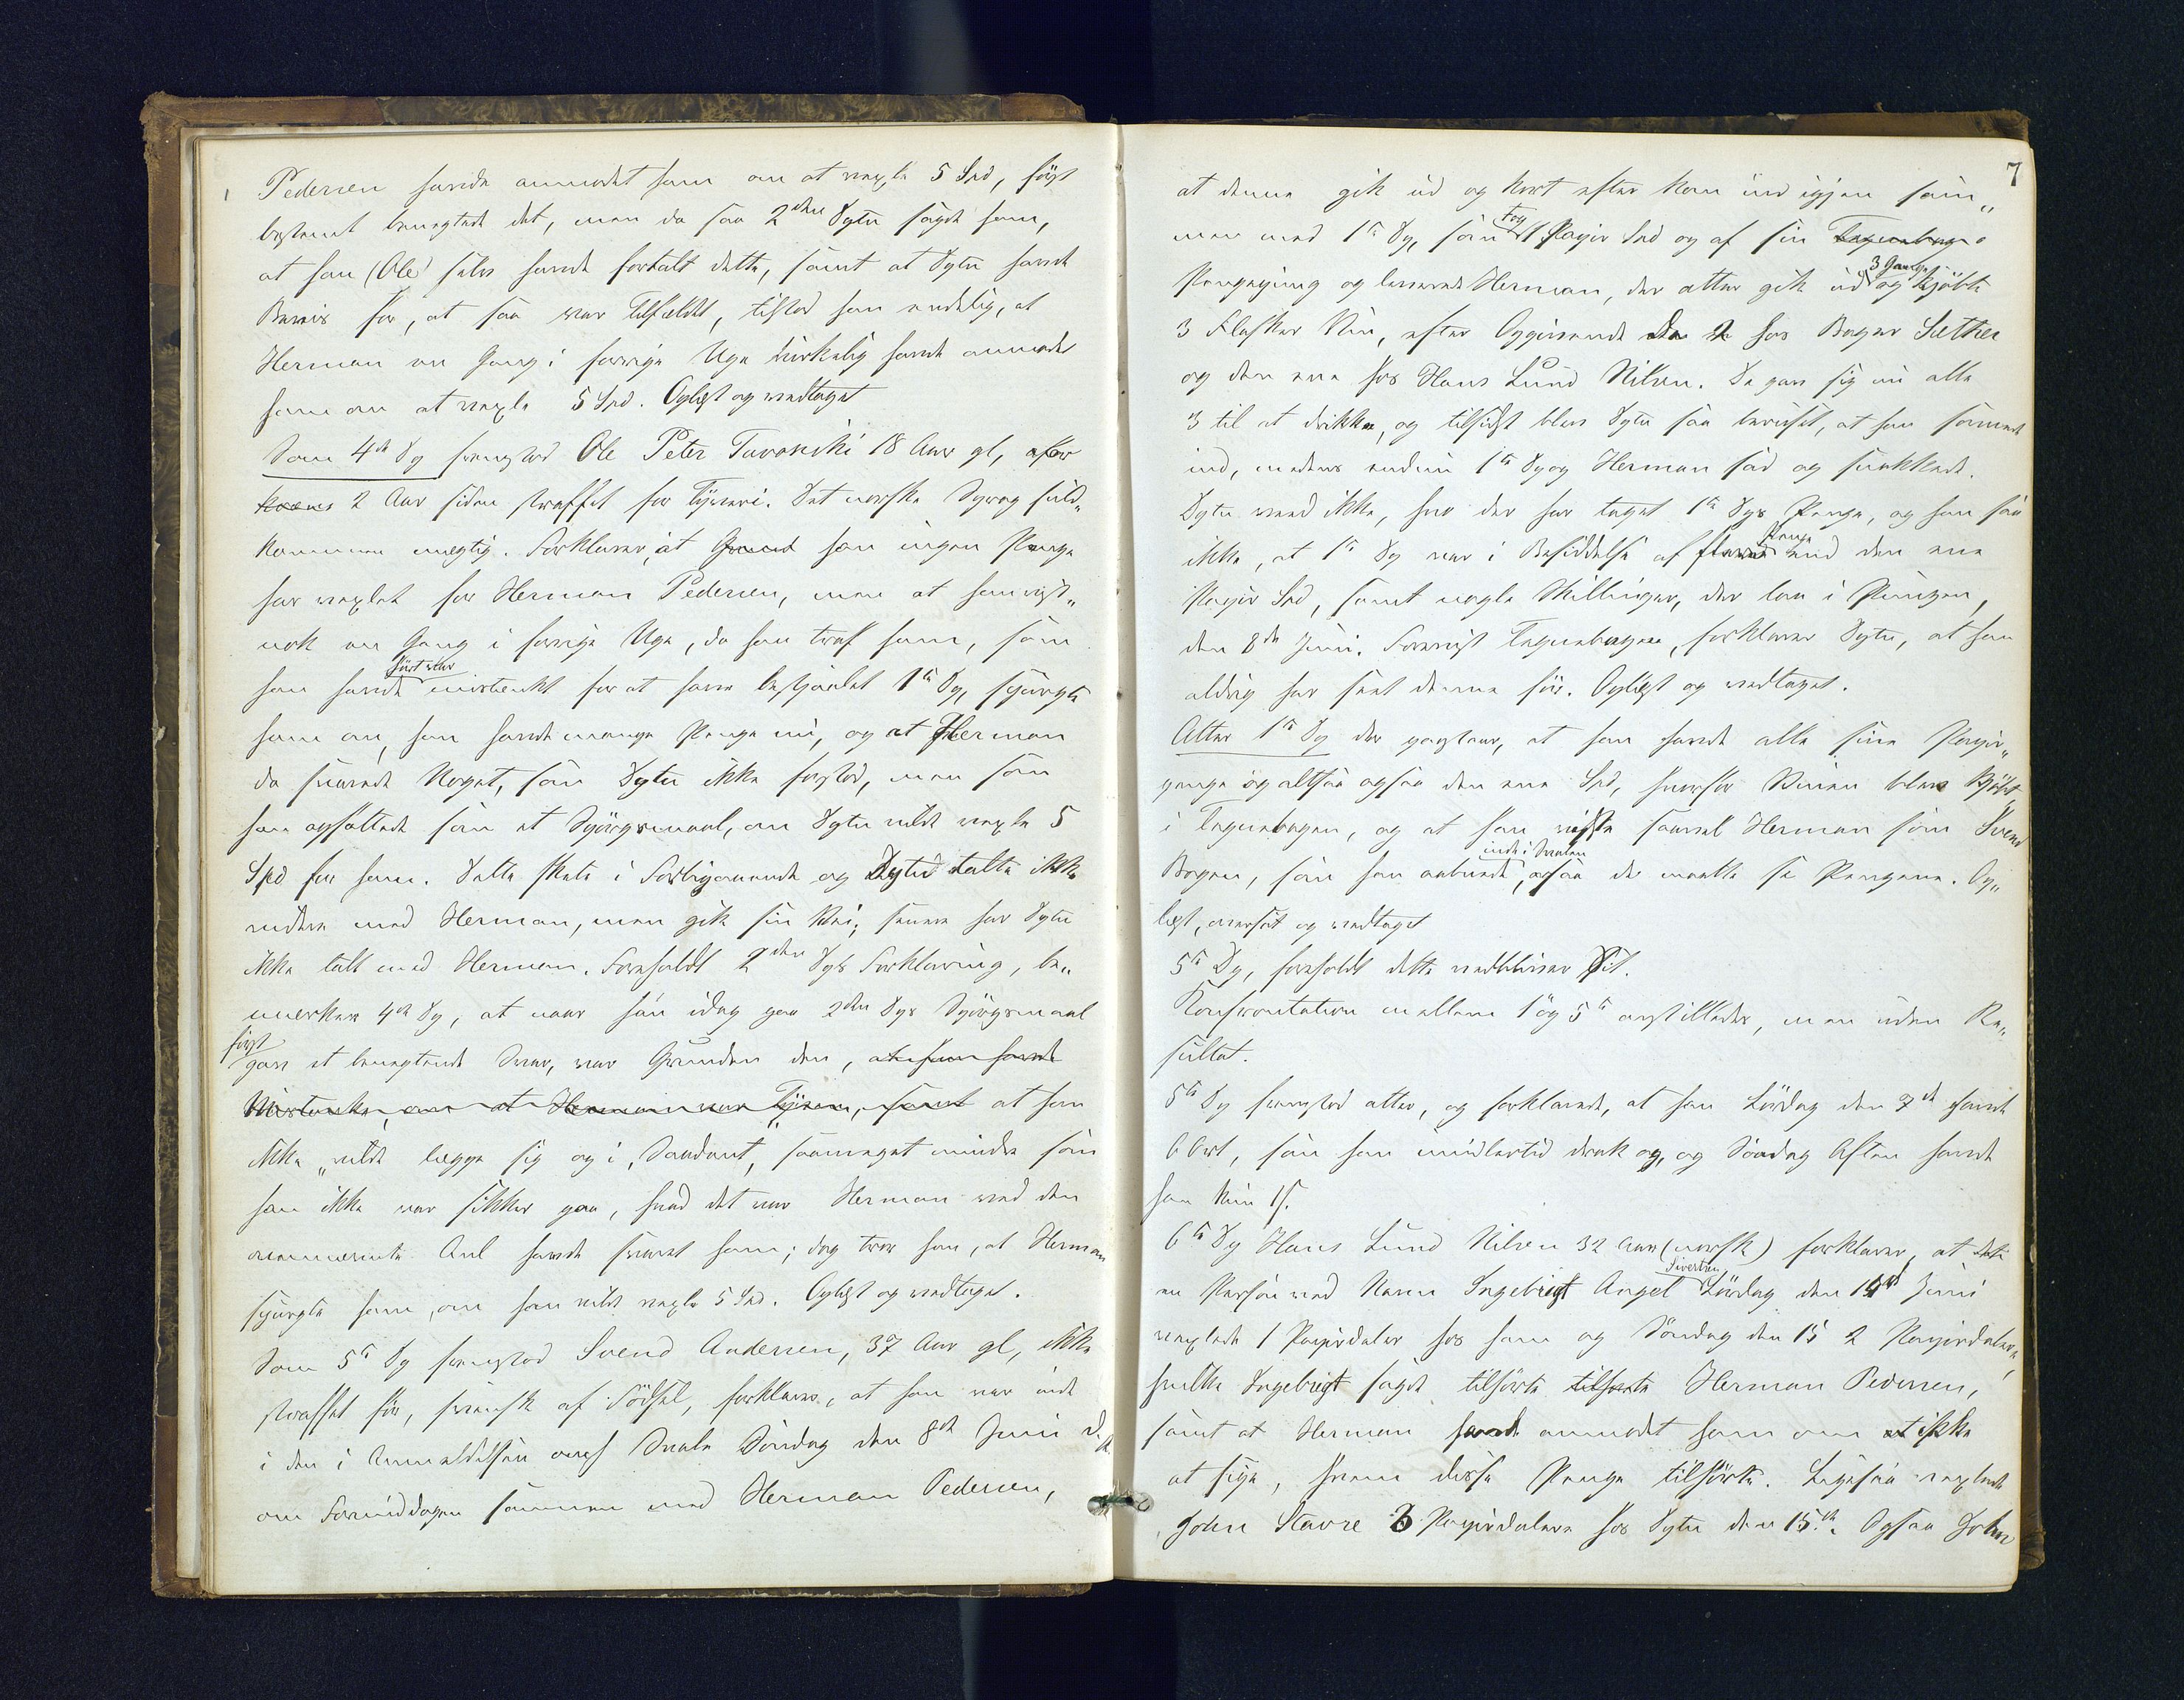 Pedersen havde anmodet ham om at vexle 5 Spd, först
bestemt benegtede det, men da saa 2den Dptn sagde ham,
at han (Ole) selv havde fortalt dette, samt at Dptn havde
Bevis for, at saa var Tilfældet, tilstod han endelig, at
Herman en Gang i forrige Uge virkelig havde anmodet
ham om at vexle 5 Spd. Oplæst og vedtaget
Som 4de Dp fremstod Ole Peter Tuvonichi 18 Aar gl, 
2 Aar siden straffet for Tyveri. Det norske Sprog fuld„
kommen mægtig. Forklarer, at han ingen Penge
har vexlet for Herman Pedersen, men at han vist„
nok en Gang i forrige Uge, da han traf ham, som
han havde hört var mistænkt for at have bestjaalet 1ste Dp, spurgte
ham om, han havde mange Penge nu, og at Herman
da svarede Noget, som Dptn ikke forstod, men som
han opfattede som et Spörgsmaal, om Dptn vilde vexle 5
Spd for ham. Dette skete i Forbigaaende og Dptn talte ikke
videre med Herman, men gik sin Vei; senere har Dptn
ikke talt med Herman. Foreholdt 2den Dps Forklaring, be„
merker 4de Dp, at naar han idag paa 2den Dps Spörgsmaal
först gav et benegtende Svar, var Grunden den, at han havde
Mistanke om at Herman var Tyven, samt at han
ikke „vilde lægge sig op i„ Saadant, saameget mindre som
han ikke var sikker paa, hvad det var Herman ved den
ommeldte Anl havde svaret ham; dog tror han, at Herman
spurgte ham, om han vilde vexle 5 Spd. Oplæst og vedtaget.
Som 5te Dp fremstod Svend Andersen, 37 Aar gl, ikke
straffet för, svensk af Födsel, forklarer, at han var inde
i den i Anmeldelsen omh Svale Söndag den 8de Juni d. A.
om Formiddagen sammen med Herman Pedersen,
7
at denne gik ud og kort efter kom ind igjen sam„
men med 1ste Dp, som tog 1 Papir Spd op af sin Tegnebog
Pengepung og leverede Herman, der atter gik ud 3 Gange og kjöbte
3 Flasker Vin, efter Opgivende de 2 hos Bager Sæther
og den ene hos Hans Lund Nilsen. De gav sig nu alle
3 til at drikke, og tilsidst blev Dptn saa beruset, at han sovnede
ind, medens endnu 1ste Dp og Herman sad og snakkede.
Dptn veed ikke, hvo der har taget 1ste Dps Penge, og han saa
ikke, at 1ste Dp var i Besiddelse af flere Penge end den ene
Papir Spd, samt nogle Skillinger, der laa i Pungen,
den 8de Juni. Forevist Tegnebogen, forklarer Dptn, at han
aldrig har seet denne för. Oplæst og vedtaget.
Atter 1ste Dp der paastaar, at han havde alle sine Papir„
penge og altsaa ogsaa den ene Spd, hvorfor Vinen blev kjöbt
i Tegnebogen, og at han viste saavel Herman som Svend
Bogen, som han aabnede inde i Svalen, saa de maatte se Pengene. Op„
læst, oversat og vedtaget
5te Dp, foreholdt dette vedbliver Sit.
Konfrontation mellem 1 og 5te anstilledes, men uden Re„
sultat.
5te Dp fremstod atter, og forklarede, at han Lördag den 7de havde
6 Ort, som han imidlertid drak op, og Söndag Aften havde
han kun 1 s.
6te Dp Hans Lund Nilsen 32 Aar (norsk) forklarer, at
en Person ved Navn Ingebrigt Angel Sivertsen Lördag den 14de Juni
vexlede 1 Papirdaler hos ham og Söndag den 15 2 Papirdalere,
hvilke Ingebrigt sagde tilhörte tilhörte Herman Pedersen,
samt at Herman havde anmodet ham om at ikke
at sige, hvem disse Penge tilhörte. Ligesaa vexlede
John Stavre 3 Papirdalere hos Dptn den 15de. Ogsaa John